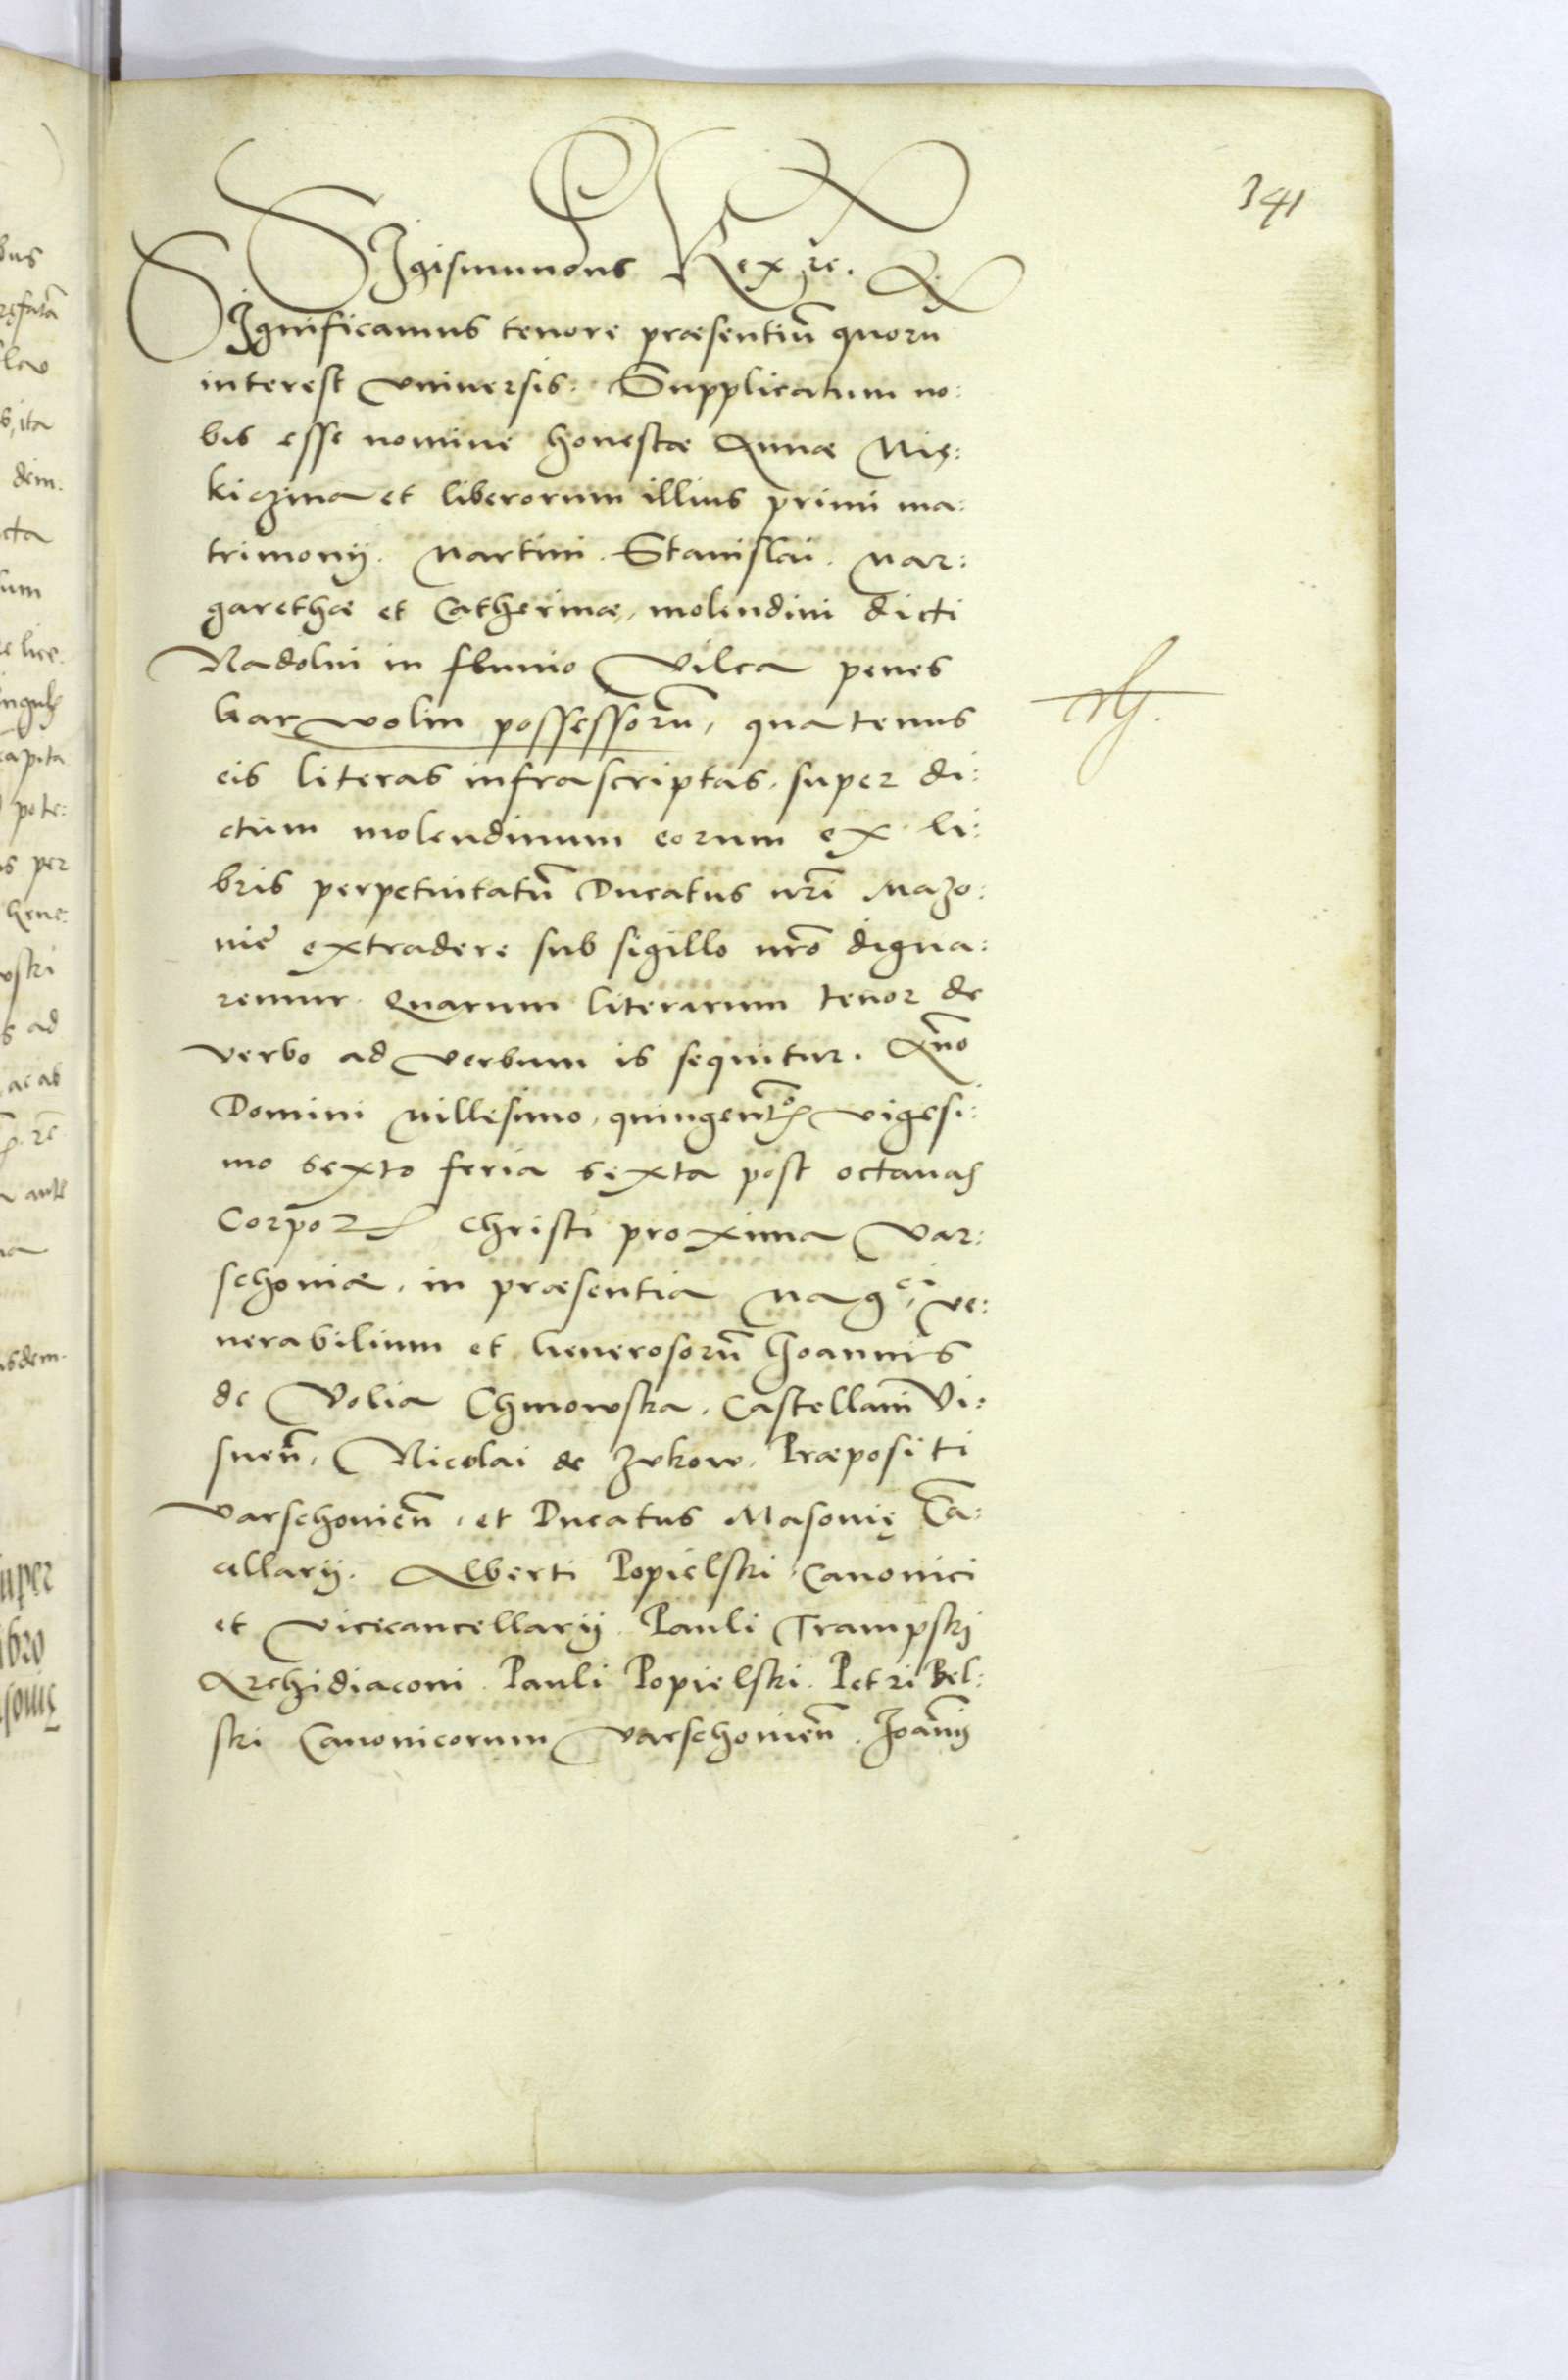 341
Sigismundus Rex ꝛc.
Significamus tenore præsentiũ quorũ
interest vniuersis: Supplicatum no:
bis esse nomine honestæ Annæ Mię:
kiczina et liberorum illius primi ma:
trimonij. Martini. Stanislai. Mar:
garethæ et Catherinæ, molendini dicti
Nadolni in fluuio Vilca penes
Garwolin possessorũ, quatenus
eis literas infrascriptas, super di:
ctum molendinum eorum ex li:
bris perpetuitatũ Ducatus nr̃i Mazo:
uię extradere sub sigillo nr̃o digna:
remur. Quarum literarum tenor de
verbo ad verbum is sequitur. Anño
Domini Millesimo, quingentõ vigesi:
mo sexto feria sexta post octauas
Corporis Christi proxima Var:
schouiæ, in præsentia Mag^ci, ve:
nerabilium et Generosorũ Joannis
de Volia Chmowska, Castellani Vi:
snen̄, Nicolai de Zukow, Præpositi
Varschouien̄, et Ducatus Masouię Cã:
cellarij. Alberti Popielski Canonici
et Vicecancellarij. Pauli Trampskj
Archidiaconi. Pauli Popielski. Petri Bel:
ski Canonicorum Varschouien̄. Joãnis